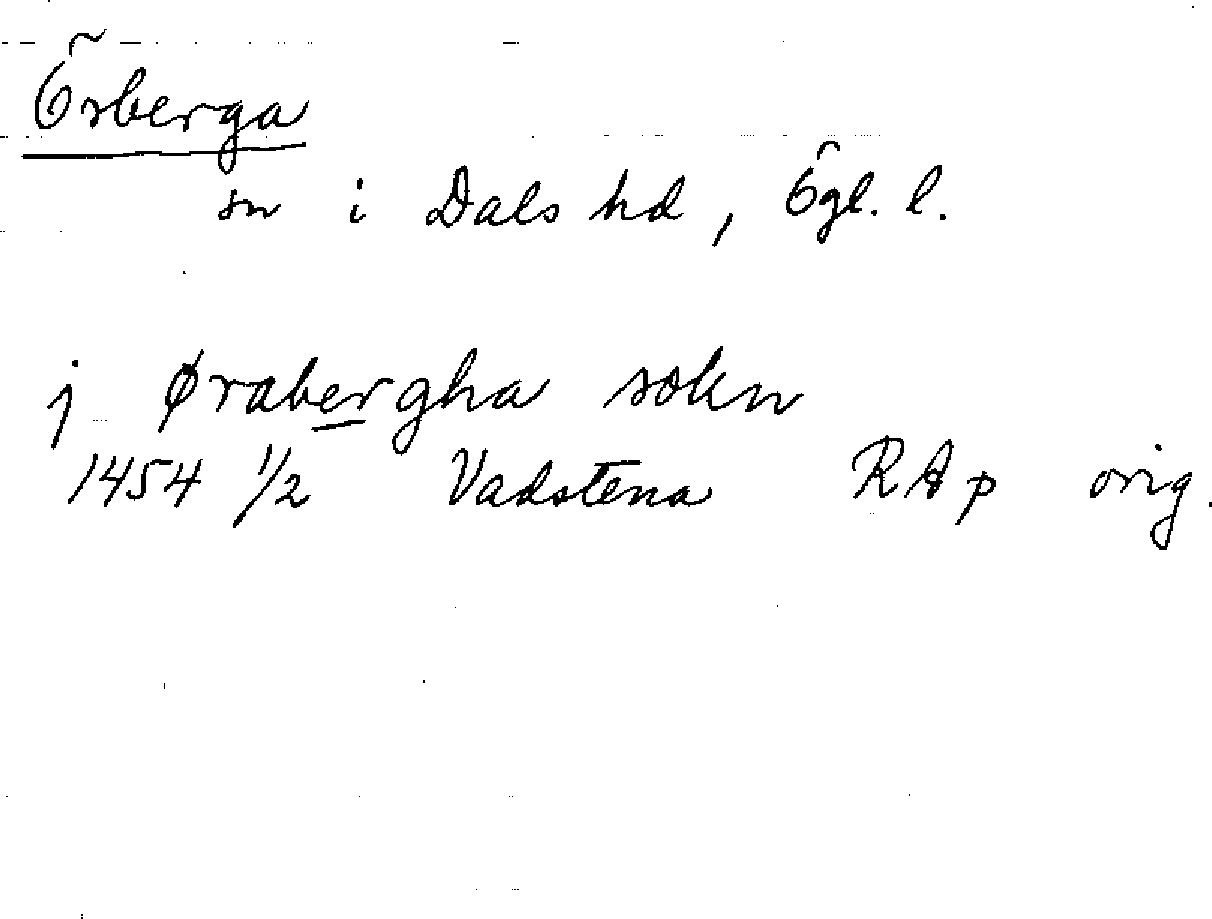 Örberga
sn i Dals hd, Ögl. l.
j Ørabergha sokn
1454 1/2 Vadstena RAp orig.